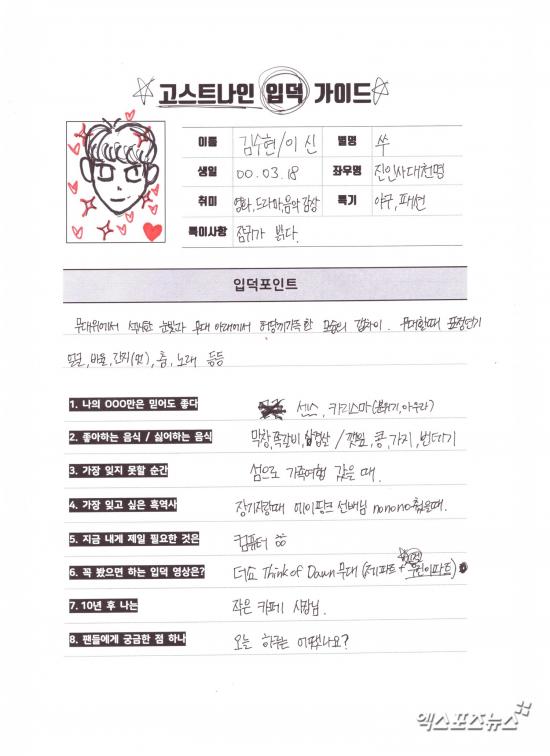 고스트나인 입덕 가이드
이름 김수현/이 신 별명 쑤
생일 00.03.18 좌우명 진인사대천명
취미 영화,드라마,음악 감상 특기 야구, 패션
특이사항 잠귀가 밝다.
입덕포인트
무대위에서 섹시한 눈빛과 무대 아래에서 허당끼가득한 모습의 갭차이. 무대할때 표정연기
얼굴, 비율, 간지(멋), 춤, 노래 등등
1. 나의 OOO만은 믿어도 좋다 센스, 카리스마(분위기,아우라)
2. 좋아하는 음식 / 싫어하는 음식 막창,쪽갈비,삼겹살 / 깻잎, 콩,가지, 번데기
3. 가장 잊지 못할 순간 섬으로 가족여행 갔을 때.
4. 가장 잊고 싶은 흑역사 장기자랑때 에이핑크 선배님 nonono췄을때.
5. 지금 내게 제일 필요한 것은 컴퓨터
6. 꼭 봤으면 하는 입덕 영상은? 더쇼 Think of Dawn 무대 (제파트+ 우진이파트)
7. 10년 후 나는 작은 카페 사장님.
8. 팬들에게 궁금한 점 하나 오늘 하루는 어땠나요?
엑스포츠뉴스